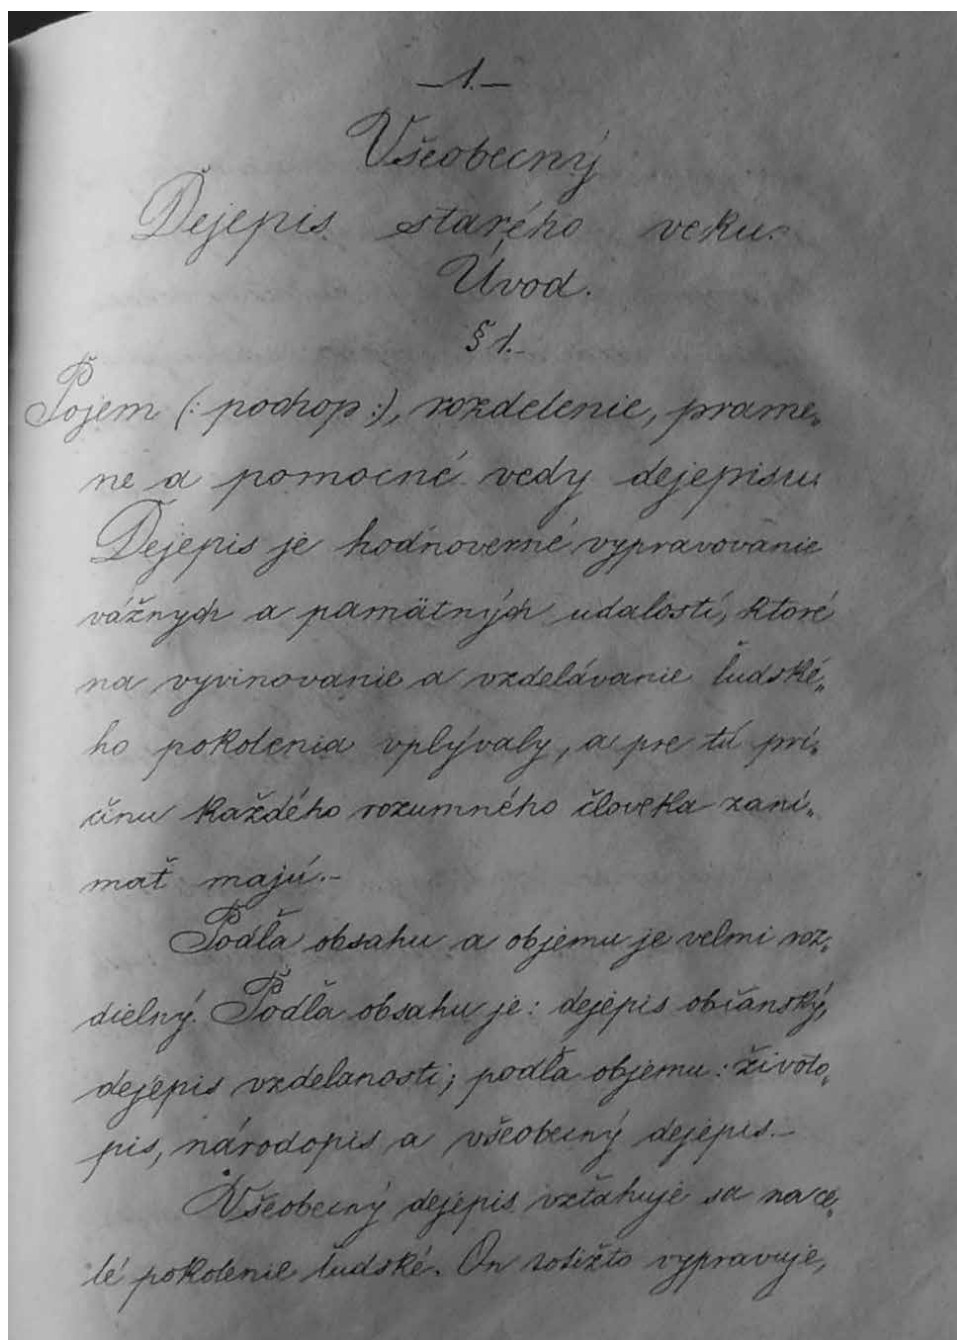 —1.—
Všeobecný
Dejepis starého veku.
Úvod.
§ 1.
Pojem (: pochop :), rozdelenie, prame„
ne a pomocné vedy dejepisu
Dejepis je hodnoverné vypravovanie
vážnych a pamätných udalostí, ktoré
na vyvinovanie a vzdelávanie ľudské„
ho pokolenia vplývaly, a pre tú prí„
činu každého rozumného človeka zaní„
mať majú.—
Podľa obsahu a objemu je velmi roz„
dielný. Podľa obsahu je: dejepis občanský,
dejepis vzdelanosti; podľa objemu: životo„
pis, národopis a všeobecný dejepis.—
Všeobecný dejepis vzťahuje sa na ce„
lé pokolenie ľudské. On totižto vypravuje,